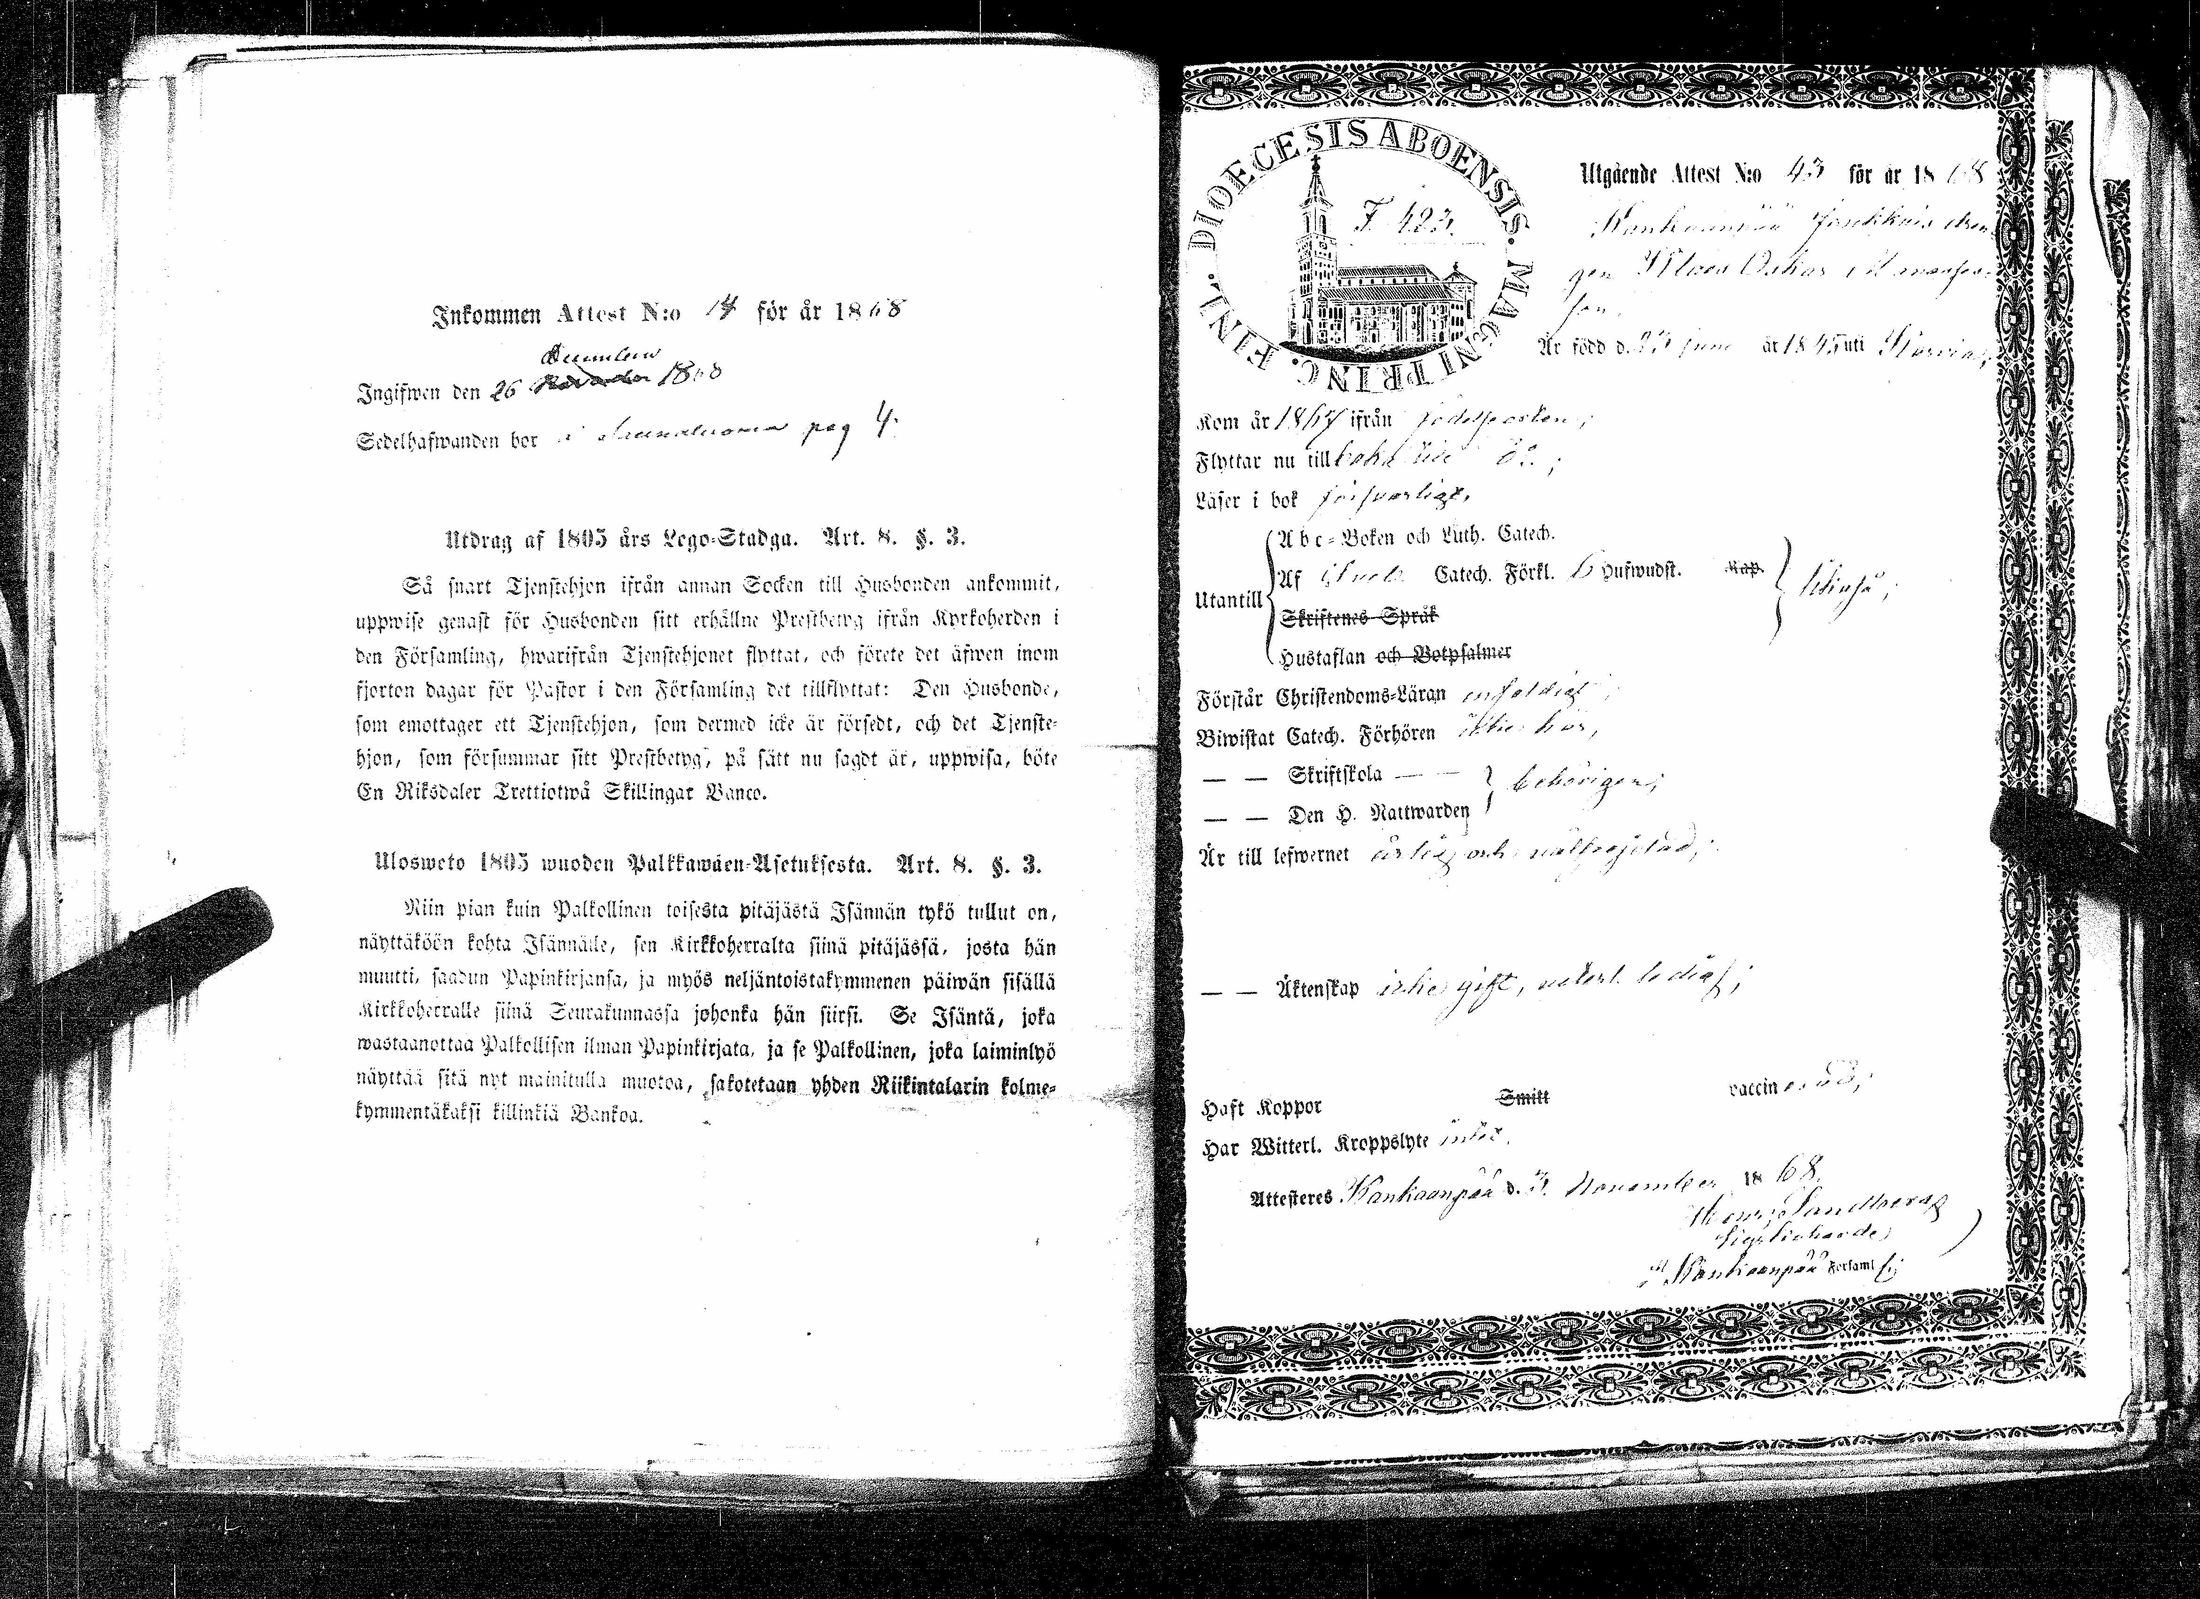 Inkommen Attest N:o 14 för år 1868
December
Ingifwen den 26 November 1868
Sedelhafwanden bor i pag 4.
Utdrag af 1805 års Lego-Stadga. Art. 8. §. 3.
Så snart Tjenstehjon ifrån annan Socken till Husbonden ankommit,
uppwise genast för Husbonden sitt erhållne Prestbetyg ifrån Kyrkoherden i
den Församling, hwarifrån Tjenstehjonet flyttat, och förete det äfwen inom
fjorton dagar för Pastor i den Församling det tillflyttat: Den Husbonde,
som emottager ett Tjenstehjon, som dermed icke är försedt, och det Tjenste-
hjon, som försummar sitt Prestbetyg, på sätt nu sagdt är, uppwisa, böte
En Riksdaler Trettiotwå Skillingar Banco.
Ulosweto 1805 wuoden Palkkawäen-Asetuksesta. Art. 8. §. 3.
Niin pian kuin Palkollinen toisesta pitäjästä Isännän tykö tullut on,
näyttäköön kohta Isännälle, sen Kirkkoherralta siinä pitäjässä, josta hän
muutti, saadun Papinkirjansa, ja myös neljäntoistakymmenen päiwän sisällä
Kirkkoherralle siinä Seurakunnassa johonka hän siirsi. Se Isäntä, joka
wastaanottaa Palkollisen ilman Papinkirjata, ja se Palkollinen, joka laiminlyö
näyttää sitä nyt mainitulla muotoa, sakotetaan yhden Riikintalarin kolme-
kymmentäkaksi killinkiä Bankoa.
DIOECESIS ABOENSIS. MAGNI PRINC. FINL.
F. 423.
Utgående Attest N:o 43 för år 1868
Kankaanpää dren-
gen Klaes Oskar
son.
Är född d. 23 juni år 1845 uti
Kom år 1867 ifrån födelseorten;
Flyttar nu till
Läser i bok försvarligt,
Utantill
Abc-Boken och Luth. Catech.
Af Catech. Förkl. 6 Hufwudst. Kap.
Skriftenes Språk
Hustaflan och Botpsalmer
Förstår Christendoms-Läran enfaldigt;
Biwistat Catech. Förhören här,
— — Skriftskola — —
behörigen;
— — Den H. Nattwarden
Är till lefwernet ärlig och wälfrejdad;
— — Äktenskap icke gift, veterl. ledig;
Haft Koppor Smitt vaccinerad;
Har Witterl. Kroppslyte intet.
Attesteres Kankaanpää d. 3. November 1868.
Sandberg
Kankaanpää Forsaml